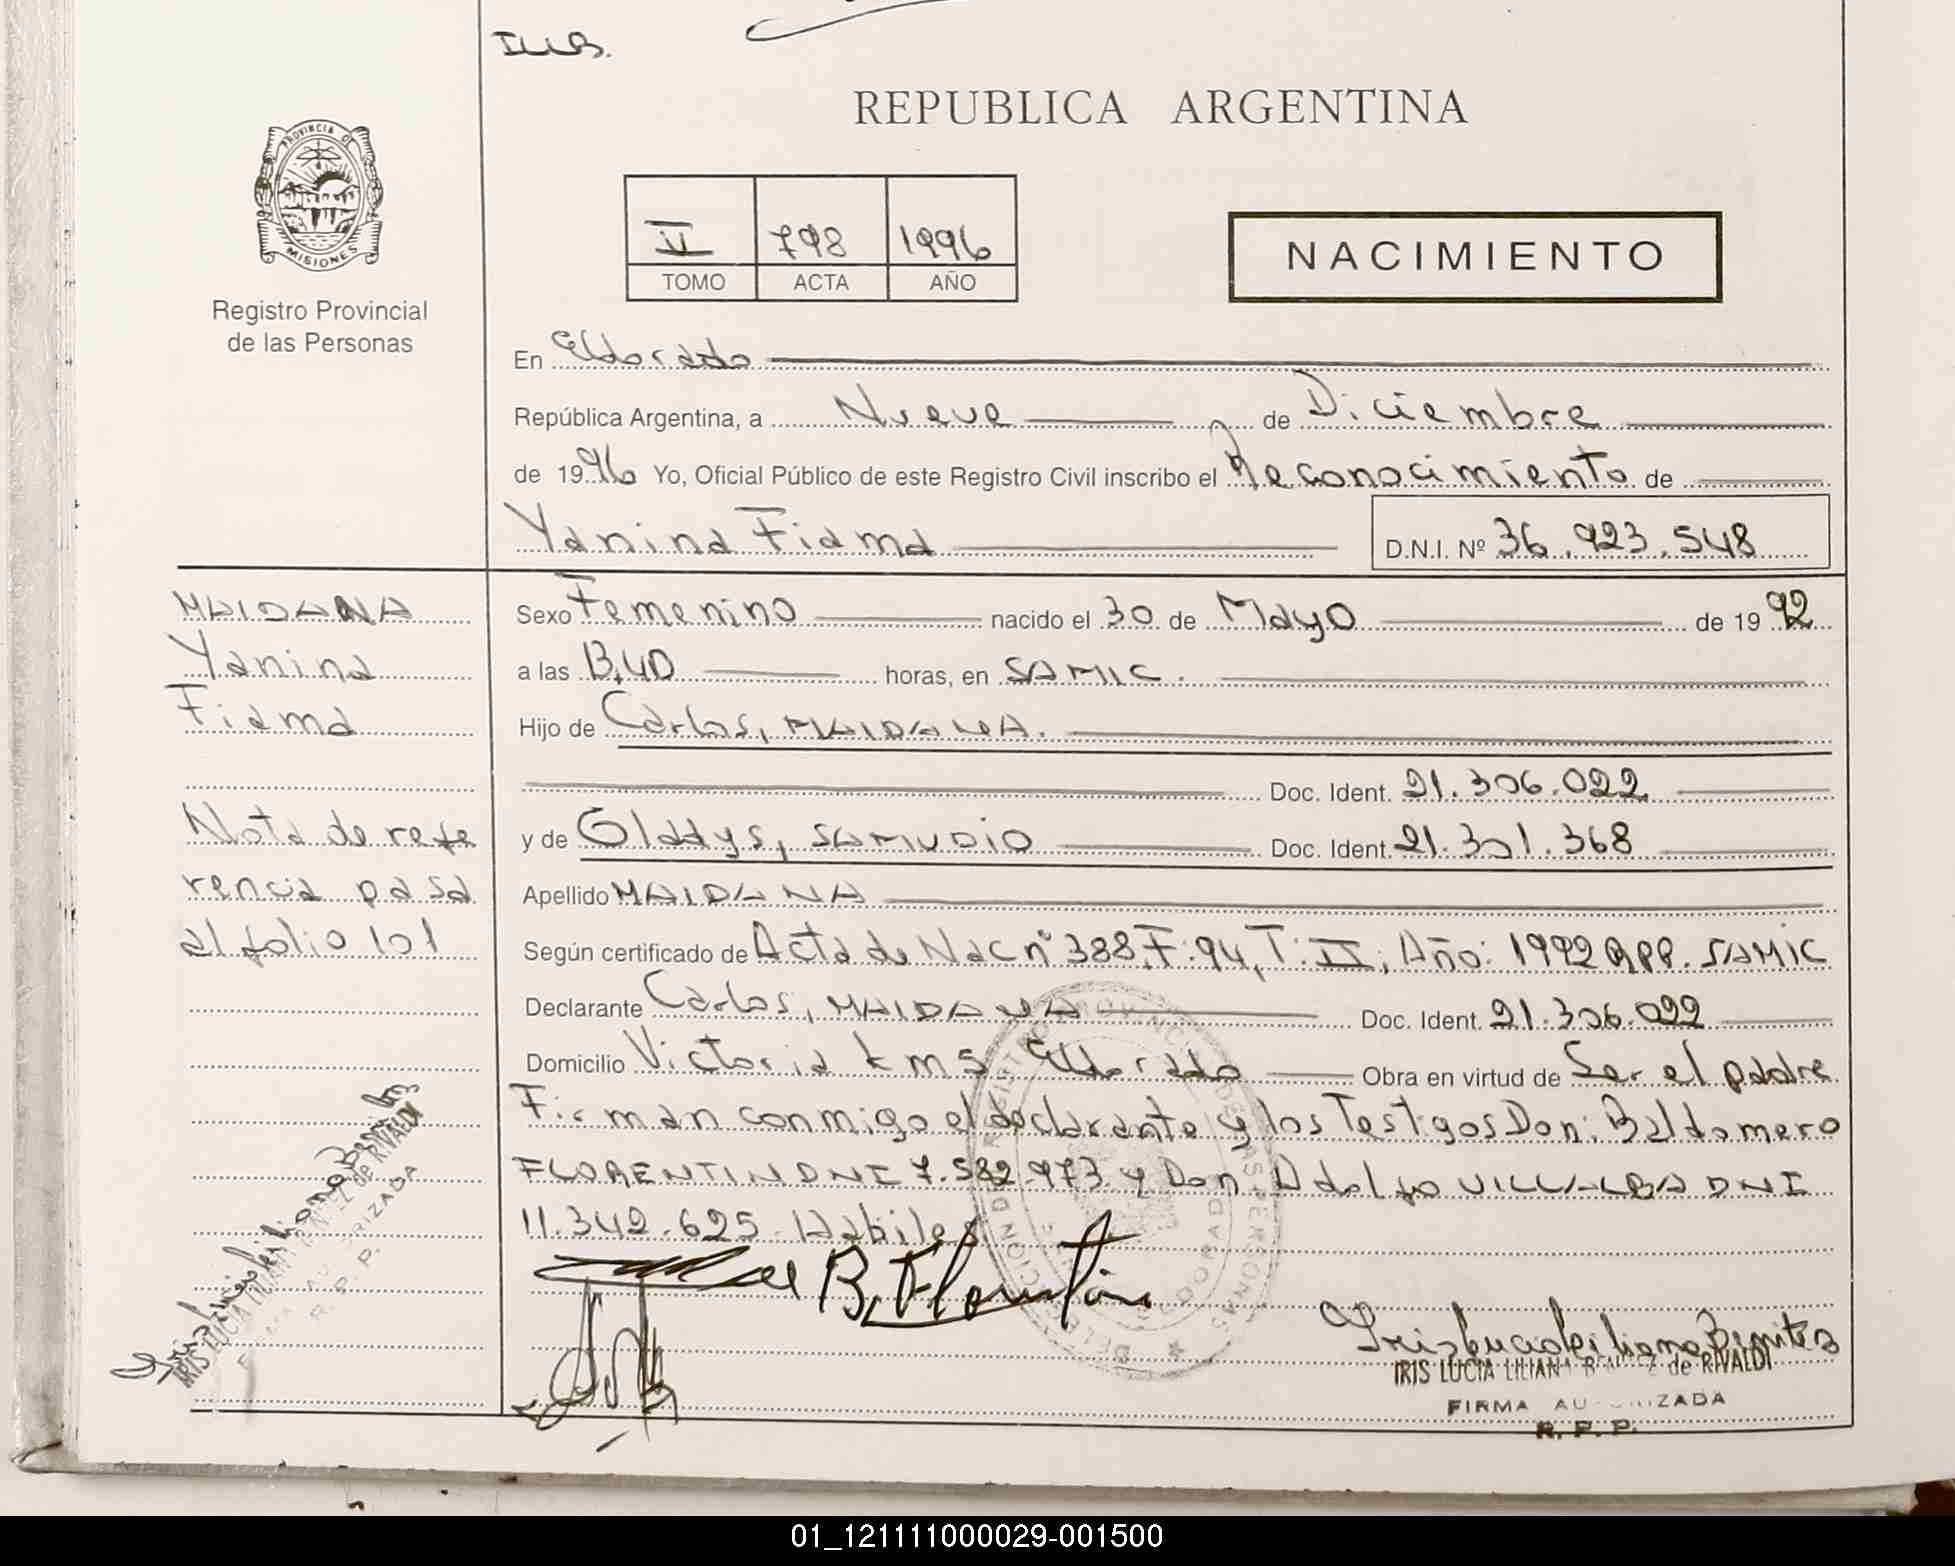 REPUBLICA ARGENTINA
PROVINCIA D
MISIONES
Registro Provincial
de las Personas
798 1996
TOMO ACTA AÑO
NACIMIENTO
En Eldorado
República Argentina, a Nueve de Diciembre
de 1996 Yo, Oficial Público de este Registro Civil inscribo el Reconocimiento de
Yanina Fiama D.N.I. Nº 36.923.548
MAIDANA
Yanina
Fiama
Nota de refe
rencia pasa
al folio 101
Sexo Femenino nacido el 30 de Mayo de 1992
a las horas, en SAMIC.
Hijo de Carlos, MAIDANA.
Doc. Ident. 21.306.022
y de Gladys, SAMUDIO Doc. Ident. 21.301.368
Apellido MAIDANA
Según certificado de Acta de Nac nº 388, F: 94, T: II, Año: 1992 RPP. SAMIC
Declarante Carlos, MAIDANA Doc. Ident. 21.306.022
Domicilio Victoria km 5 Eldorado Obra en virtud de Ser el padre
Firman conmigo el declarante y los Testigos Don: Baldomero
FLORENTIN DNI 7.582.973 y Don Adolfo VILLALBA DNI
11.342.625. Habiles
B. Florentin
Iris Lucia Liliana Benitez
IRIS LUCIA LILIANA de RIVALDI
FIRMA AUTORIZADA
R. P. P.
Iris Lucia Liliana Benitez
IRIS LUCIA LILIANA de RIVALDI
R. P. P.
01_121111000029-001500